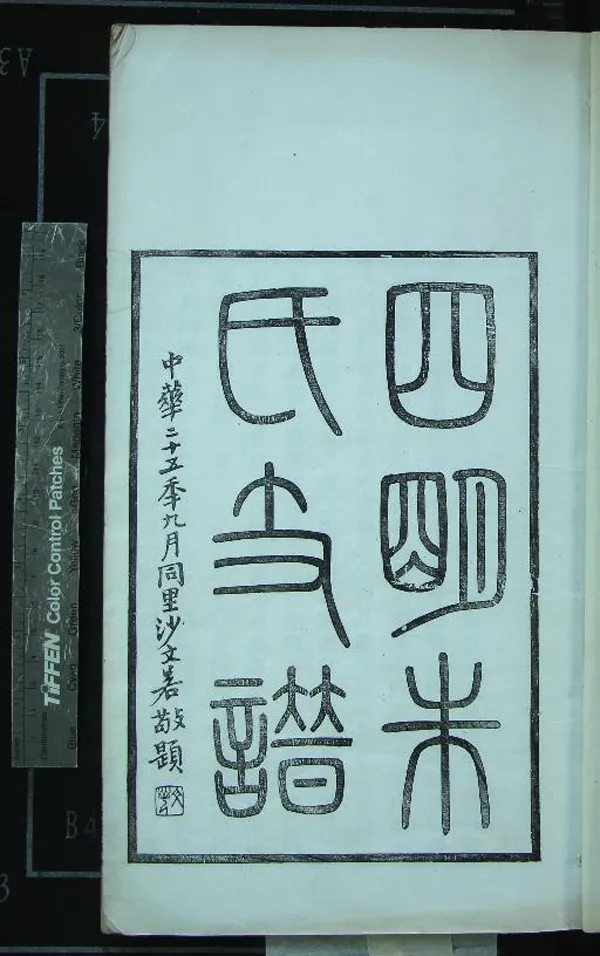 四明朱
氏支譜
中華二十五秊九月同里沙文若敬題
TIFFEN Color Control Patches
Blue Cyan Green Yellow Red Magenta White 3/Color Black
A3
4
B4
3